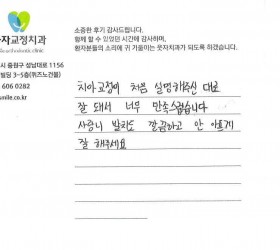 자교정치과
orthodontic clinic
시 중원구 성남대로 1156
빌딩 3~5층(위즈노건물)
606 0282
smile.co.kr
소중한 후기 감사드립니다.
함께 할 수 있었던 시간에 감사하며,
환자분들의 소리에 귀 기울이는 웃자치과가 되도록 하겠습니다.
치아교정이 처음 설명해주신 대로
잘 돼서 너무 만족스럽습니다
사랑니 발치도 깔끔하고 안 아프게
잘 해주세요